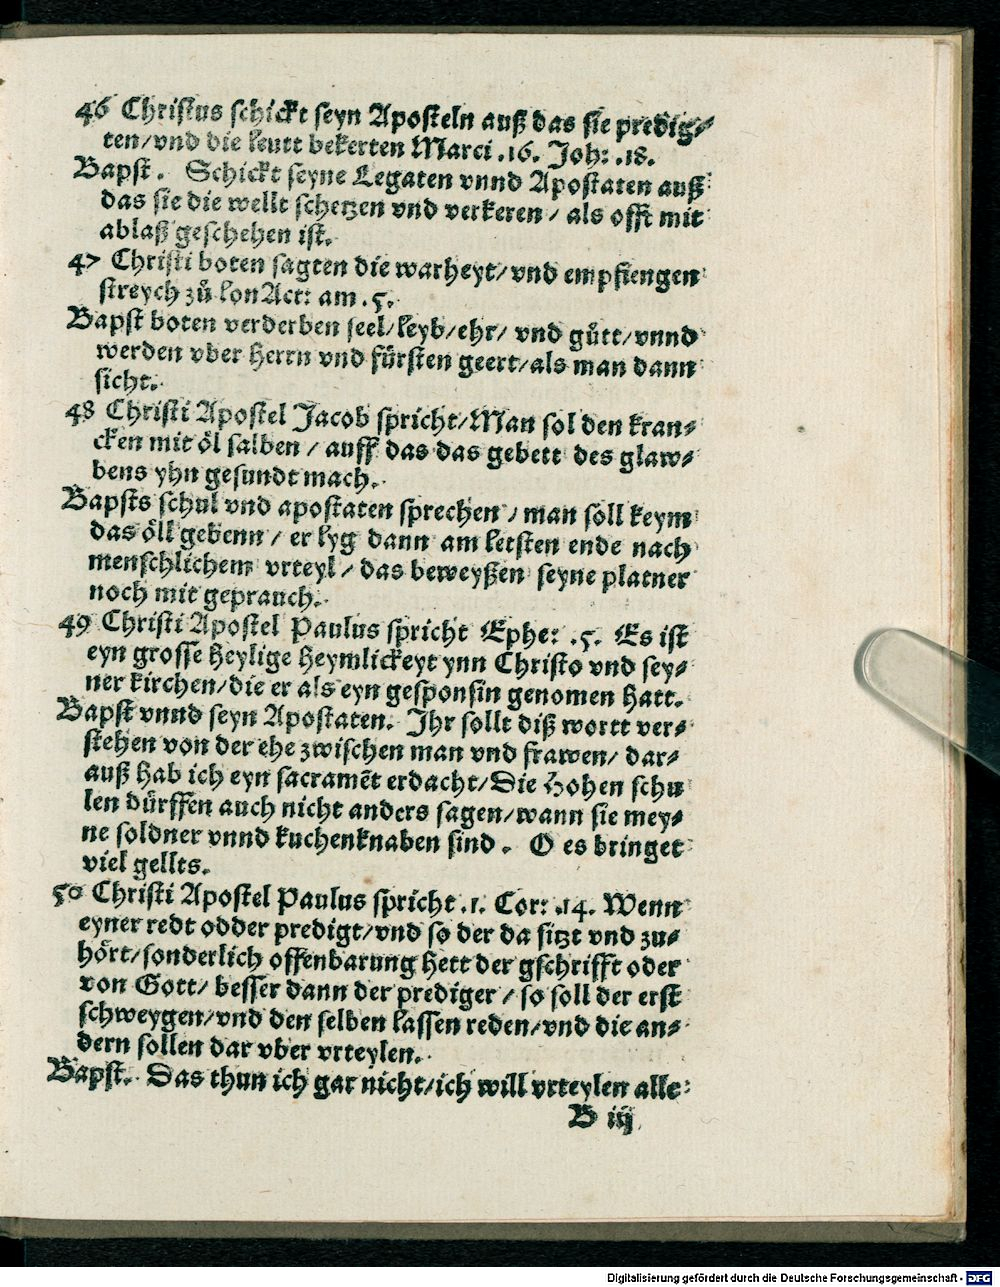 46 Christus schickt seyn Aposteln auß das sie predig⸗
ten/vnd die leutt bekerten Marci .16. Joh: .18.
Bapst. Schickt seyne Legaten vnnd Apostaten auß
das sie die wellt schetzen vnd verkeren/ als offt mit
ablaß geschehen ist.
47 Christi boten sagten die warheyt/vnd empfiengen
streych zů lon Act: am .5.
Bapst boten verderben seel/leyb/ehr/ vnd gůtt/vnnd
werden vber herrn vnd fürsten geert/als man dann
sicht.
48 Christi Apostel Jacob spricht/Man sol den kran⸗
cken mit öl salben/ auff das das gebett des glaw⸗
bens yhn gesundt mach.
Bapsts schul vnd apostaten sprechen/ man söll keym
das öll gebenn/ er lyg dann am letsten ende nach
menschlichem vrteyl/ das beweyßen seyne platner
noch mit geprauch.
49 Christi Apostel Paulus spricht Ephe: .5. Es ist
eyn grosse heylige heymlickeyt ynn Christo vnd sey⸗
ner kirchen/die er als eyn gesponsin genomen hatt.
Bapst vnnd seyn Apostaten. Ihr sollt diß wortt ver⸗
stehen von der ehe zwischen man vnd frawen/ dar⸗
auß hab ich eyn sacramēt erdacht/Die Hohen schu
len dürffen auch nicht anders sagen/wann sie mey⸗
ne soldner vnnd kuchenknaben sind. O es bringet
viel gellts.
50 Christi Apostel Paulus spricht .1. Cor: .14. Wenn
eyner redt odder predigt/vnd so der da sitzt vnd zu⸗
hört/sonderlich offenbarung hett der gschrifft oder
von Gott/ besser dann der prediger/ so soll der erst
schweygen/vnd den selben lassen reden/vnd die an⸗
dern sollen dar vber vrteylen.
Bapst. Das thun ich gar nicht/ich will vrteylen alle⸗
B iij
Digitalisierung gefördert durch die Deutsche Forschungsgemeinschaft - DFG